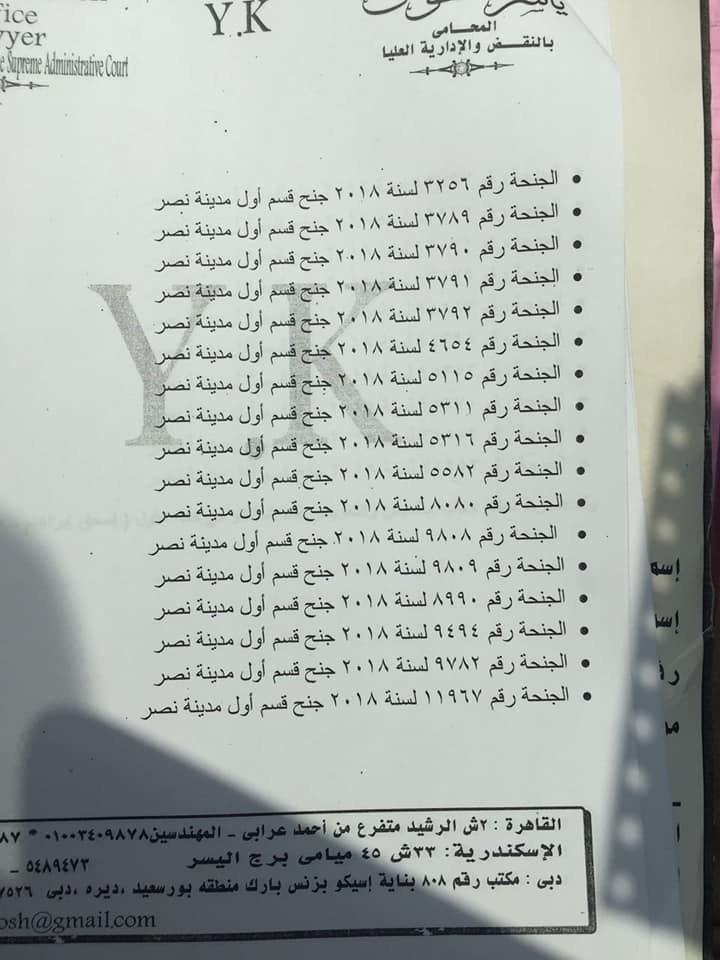 Y.K
المحامى
بالنقض والإدارية العليا
Supreme Administrative Court
• الجنحة رقم ٣٢٥٦ لسنة ٢٠١٨ جنح قسم أول مدينة نصر
• الجنحة رقم ٣٧٨٩ لسنة ٢٠١٨ جنح قسم أول مدينة نصر
• الجنحة رقم ٣٧٩٠ لسنة ٢٠١٨ جنح قسم أول مدينة نصر
• الجنحة رقم ٣٧٩١ لسنة ٢٠١٨ جنح قسم أول مدينة نصر
• الجنحة رقم ٣٧٩٢ لسنة ٢٠١٨ جنح قسم أول مدينة نصر
• الجنحة رقم ٤٦٥٤ لسنة ٢٠١٨ جنح قسم أول مدينة نصر
• الجنحة رقم ٥١١٥ لسنة ٢٠١٨ جنح قسم أول مدينة نصر
• الجنحة رقم ٥٣١١ لسنة ٢٠١٨ جنح قسم أول مدينة نصر
• الجنحة رقم ٥٣١٦ لسنة ٢٠١٨ جنح قسم أول مدينة نصر
• الجنحة رقم ٥٥٨٢ لسنة ٢٠١٨ جنح قسم أول مدينة نصر
• الجنحة رقم ٨٠٨٠ لسنة ٢٠١٨ جنح قسم أول مدينة نصر
• الجنحة رقم ٩٨٠٨ لسنة ٢٠١٨ جنح قسم أول مدينة نصر
• الجنحة رقم ٩٨٠٩ لسنة ٢٠١٨ جنح قسم أول مدينة نصر
• الجنحة رقم ٨٩٩٠ لسنة ٢٠١٨ جنح قسم أول مدينة نصر
• الجنحة رقم ٩٤٩٤ لسنة ٢٠١٨ جنح قسم أول مدينة نصر
• الجنحة رقم ٩٧٨٢ لسنة ٢٠١٨ جنح قسم أول مدينة نصر
• الجنحة رقم ١١٩٦٧ لسنة ٢٠١٨ جنح قسم أول مدينة نصر
Y.K
القاهرة : ٢ش الرشيد متفرع من أحمد عرابى - المهندسين٠١٠٠٣٤٠٩٨٧٨ *
الإسكندرية: ٣٣ش ٤٥ ميامى برج اليسر ٥٤٨٩٤٧٣ -
دبى : مكتب رقم ٨٠٨ بناية إسيكو بزنس بارك منطقه بورسعيد ،ديره ،دبى
osh@gmail.com